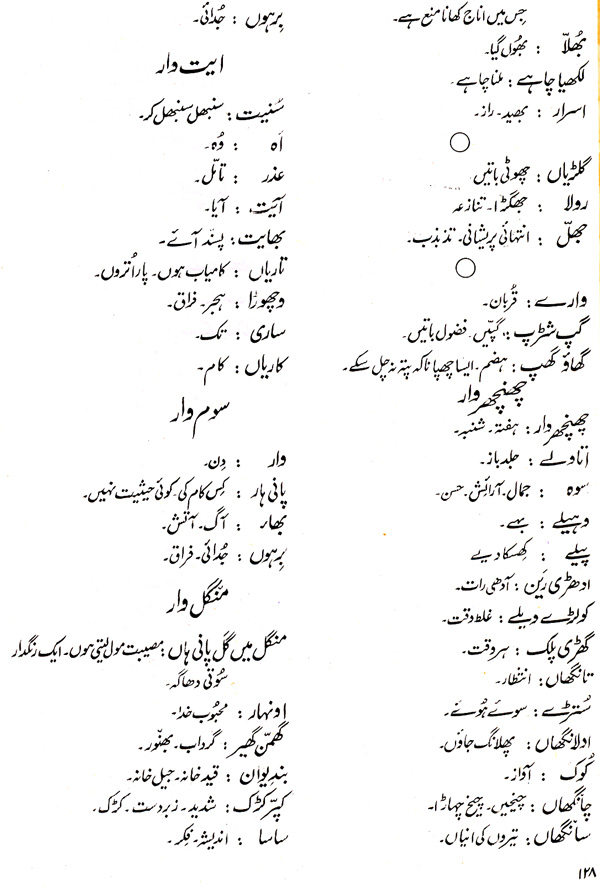 جس میں اناج کھانا منع ہے۔
بھُلاّ : بھُول گیا۔
لکھیا چاہے : ملنا چاہے۔
اسرار : بھید۔ راز۔
گلڑیاں : چھوٹی باتیں
رولا : جھگڑا۔ تنازعہ
جھلّ : انتہائی پریشانی۔ تذبذب۔
وارے : قُربان۔
گپ شڑپ : گپّیں۔ فضول باتیں۔
گھاؤ گھپ : ہضم۔ ایسا چھپانا کہ پتہ نہ چل سکے۔
چھنچھر وار
چھنچھر وار : ہفتہ۔ شنبہ۔
اتاولے : جلد باز۔
سوہ : جمال۔ آرائش۔ حسن۔
وہیلے : بہے۔
پیلے : کھسکا دیے
ادھڑی رَین : آدھی رات۔
کولڑے ویلے : غلط وقت۔
گھڑی پلک : ہر وقت۔
تانگھاں : انتظار۔
سُترڑے : سوئے ہُوئے۔
ادلانگھاں : پھلانگ جاؤں۔
کُوک : آواز۔
چانگھاں : چیخیں۔ چیخ چہاڑا۔
سانگھاں : تیروں کی انیاں۔
بِرہوں : جُدائی۔
ایت وار
سُنیت : سنبھل سنبھل کر۔
اَہ : وُہ۔
عذر : تامّل۔
آیت : آیا۔
بھایت : پسند آئے۔
تاریاں : کامیاب ہوں۔ پار اُتروں۔
وچھوڑا : ہجر۔ فراق۔
ساری : تک۔
کاریاں : کام۔
سوم وار
وار : دِن۔
پانی ہار : کِس کام کی۔ کوئی حیثیت نہیں۔
بھار : آگ۔ آتش۔
بِرہوں : جُدائی۔ فراق۔
منگل وار
منگل میں گل پانی ہاں : مصیبت مول لیتی ہوں۔ ایک رنگدار
سُوتی دھاگہ۔
اونہار : محبُوب خدا۔
گھمّن گھیر : گرداب۔ بھنور۔
بندیوان : قید خانہ۔ جیل خانہ۔
کپّر کڑک : شدید۔ زبردست۔ کڑک۔
ساسا : اندیشہ۔ فکر۔
۱۲۸